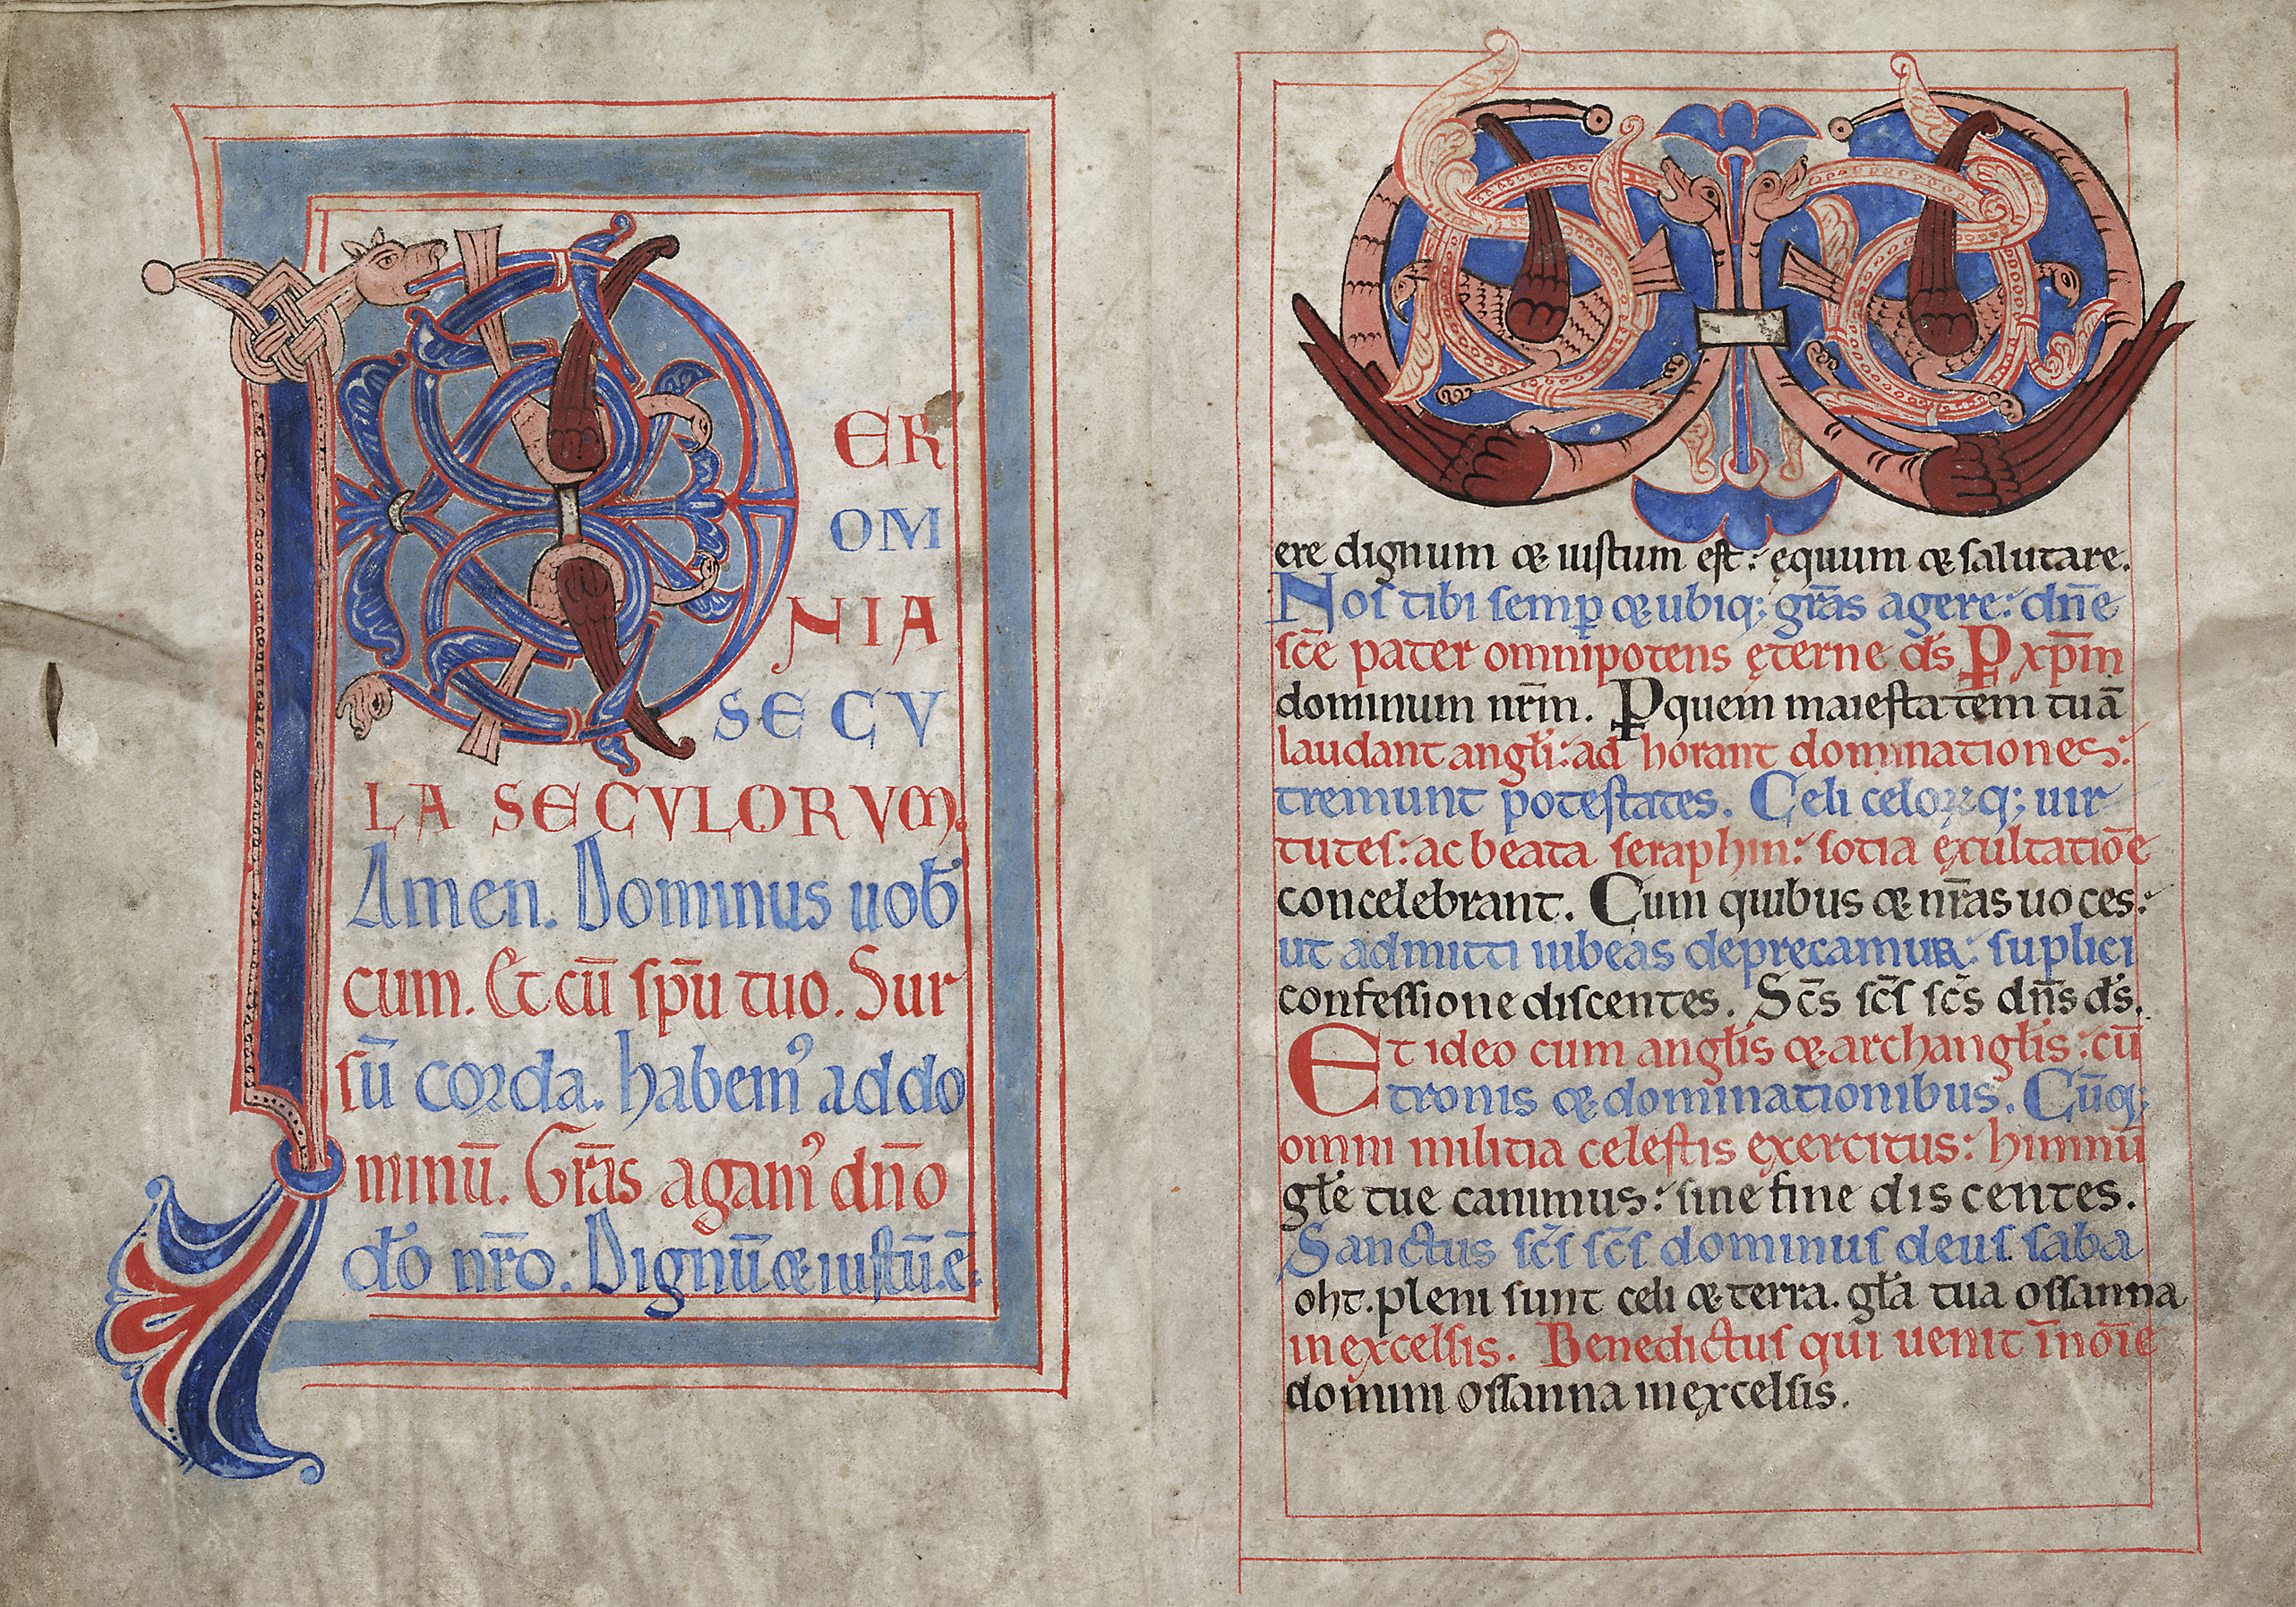 P
ER
OM
NIA
SECV
LA SECVLORVM.
Amen. Dominus uob̄
cum. Et cū sp̄u tuo. Sur
sū corda. habemꝰ ad do
minū. Gr̄as agamꝰ dn̄o
do̅ nr̄o. Dignū & iustū. ē:
V
ere dignum & iustum est: ęquum & salutare.
Nos tibi semꝑ & ubiq; gr̄as agere: dn̄e
sc̄e pater omnipotens ęterne ds̄ Ꝑ xp̄m
dominum nr̄m. Ꝑ quem maiestatem tuā
laudant angl̄i: ad horant dominationes:
tremunt potestates. Celi celoꝝ q; uir
tutes: ac beata seraphin: sotia ęxultatiōe
concelebrant. Cum quibus & nr̄as uoces:
ut admitti iubeas deprecamur: suplici
confessione discentes. Sc̄s sc̄s sc̄s dn̄s ds̄.
Et ideo cum angl̄is & archangl̄is: cū
tronis & dominationibus. Cūq;
omni militia celestis exercitus: himnū
gl̄e tue canimus: sine fine discentes.
Sanctus sc̄s sc̄s dominus deus saba
oht. pleni sunt celi & terra. gl̄a tua ossanna
in excelsis. Benedictus qui uenit ī noīe
domini ossanna in excelsis.